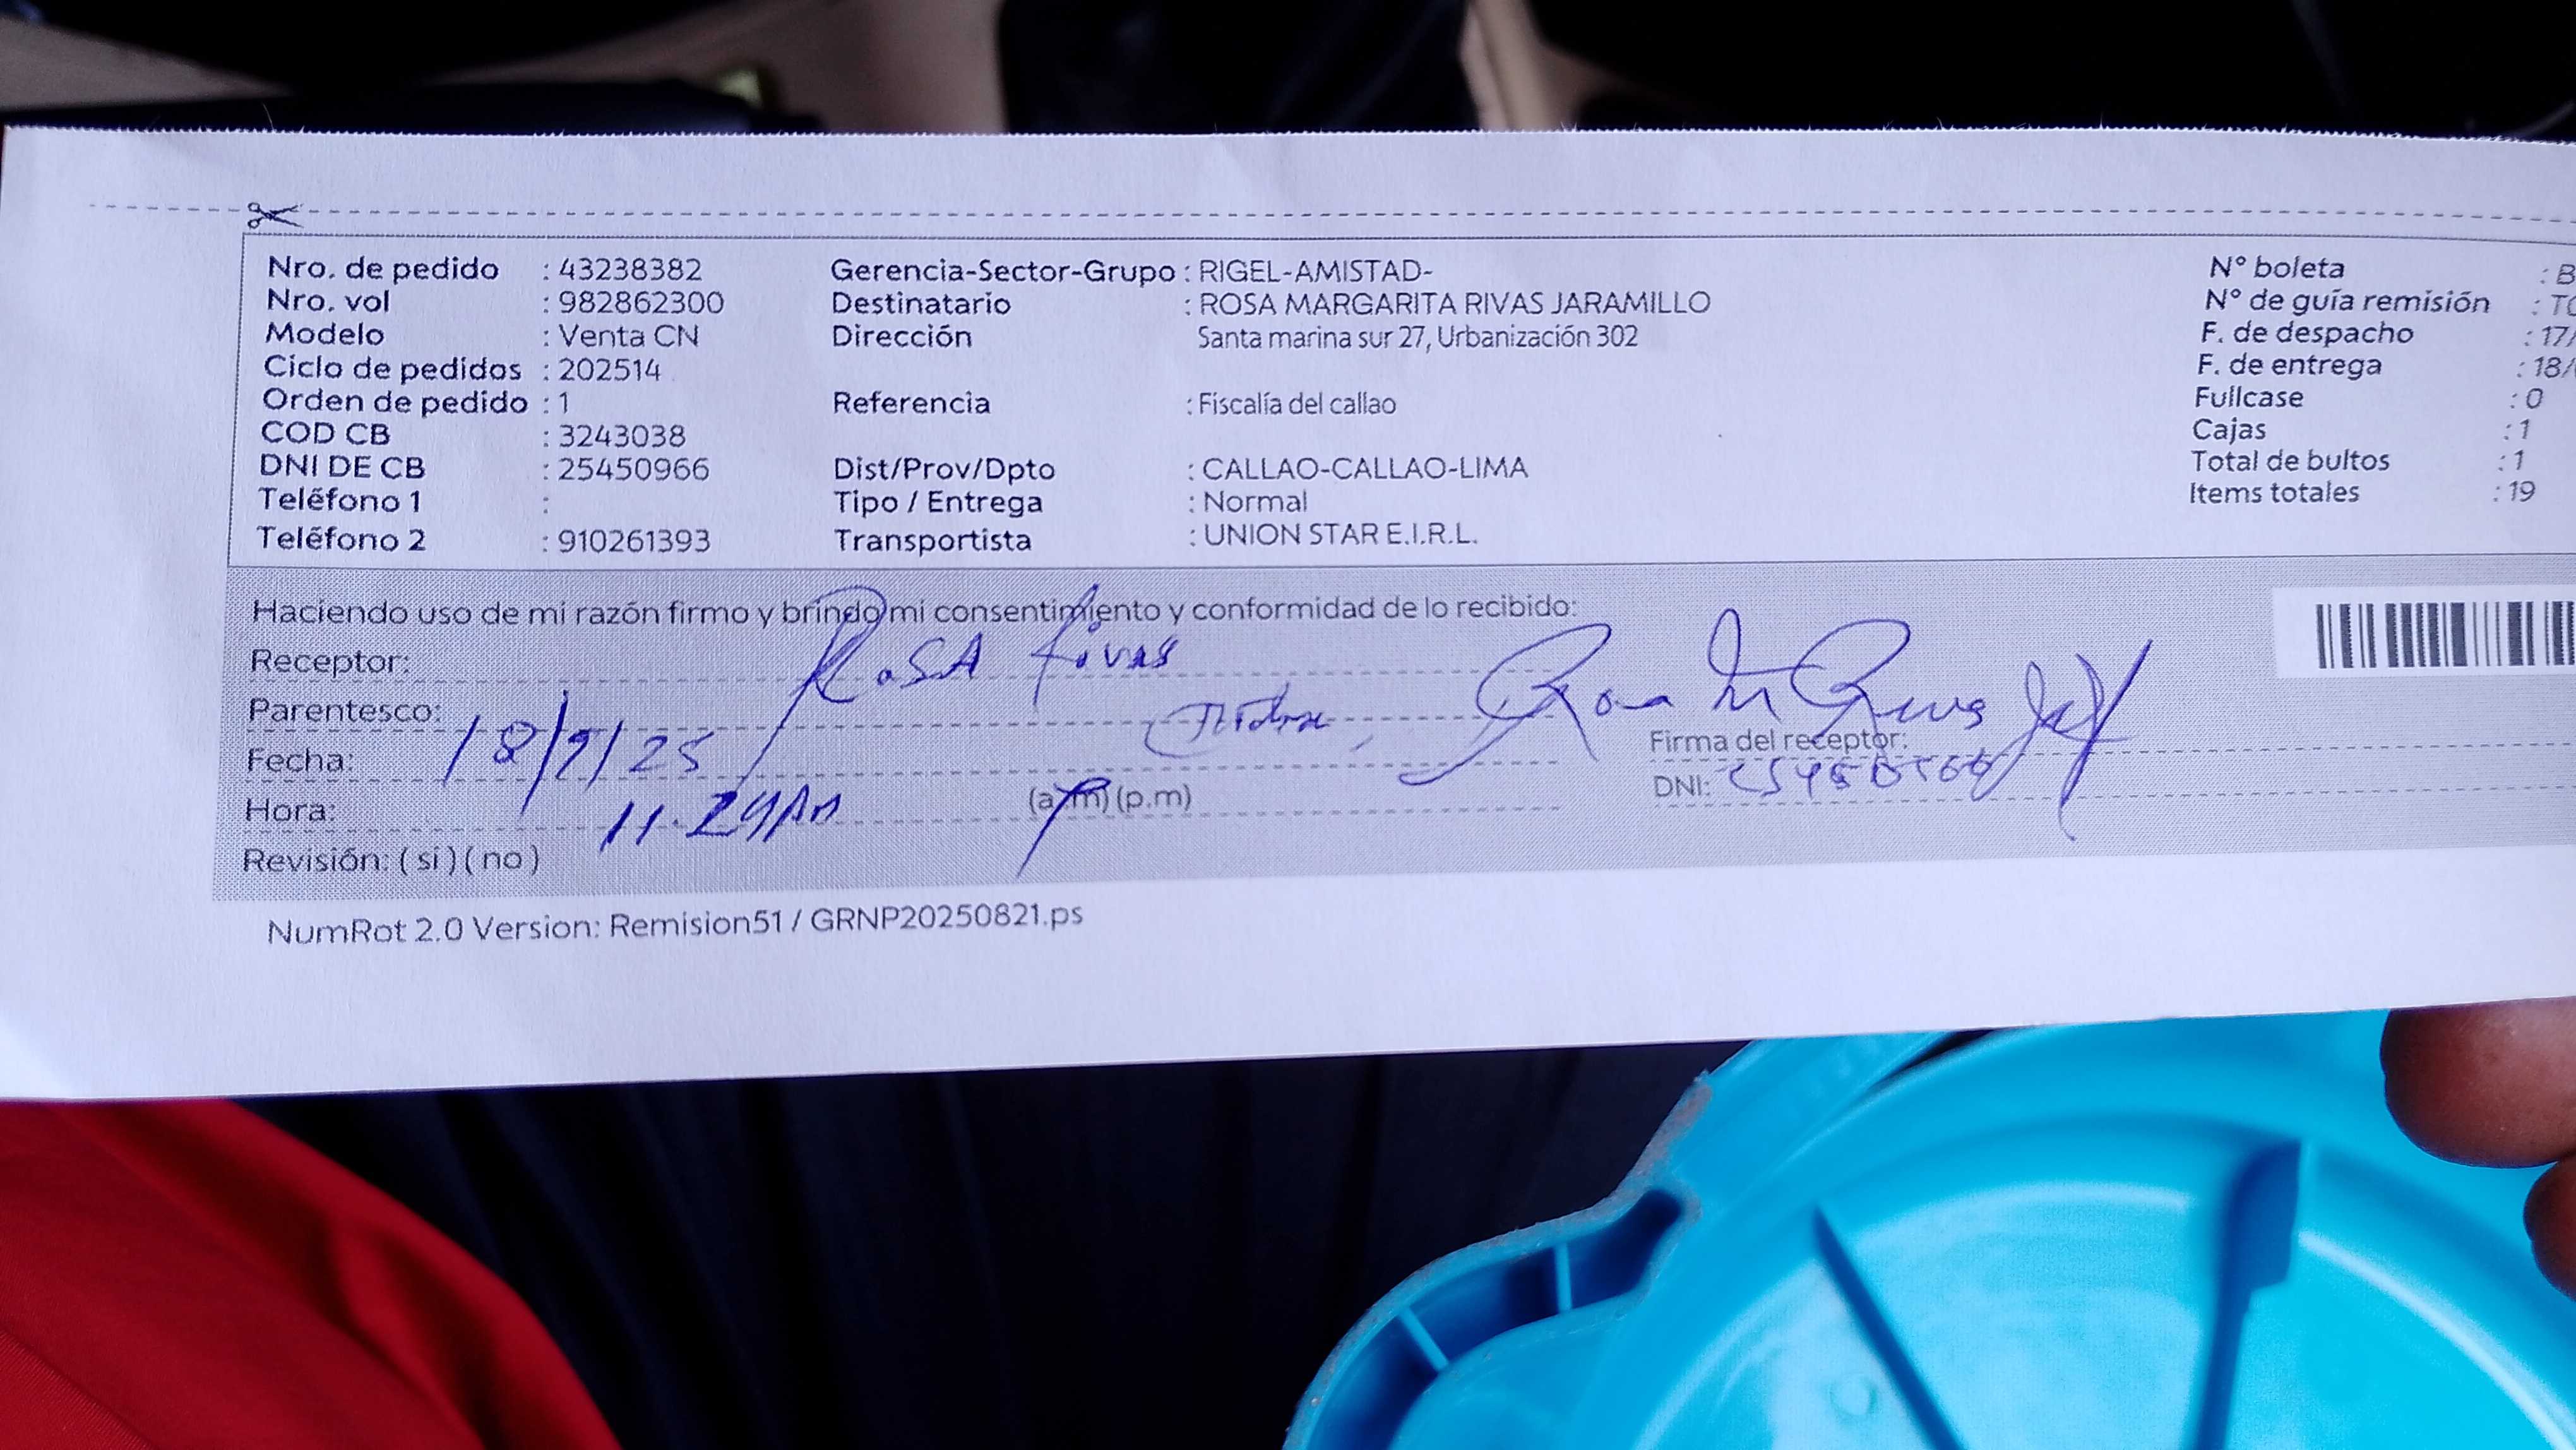 Nro. de pedido : 43238382 Gerencia-Sector-Grupo : RIGEL-AMISTAD- N° boleta : B
Nro. vol : 982862300 Destinatario : ROSA MARGARITA RIVAS JARAMILLO N° de guía remisión :
Modelo : Venta CN Dirección Santa marina sur 27, Urbanización 302 F. de despacho : 17/
Ciclo de pedidos : 202514 F. de entrega : 18/
Orden de pedido : 1 Referencia : Fiscalía del callao Fullcase : 0
COD CB : 3243038 Cajas : 1
DNI DE CB : 25450966 Dist/Prov/Dpto : CALLAO-CALLAO-LIMA Total de bultos : 1
Teléfono 1 : Tipo / Entrega : Normal Items totales : 19
Teléfono 2 : 910261393 Transportista : UNION STAR E.I.R.L.
Haciendo uso de mi razón firmo y brindo mi consentimiento y conformidad de lo recibido:
Receptor: Rosa Rivas
Parentesco:
Firma del receptor:
Fecha: 18/9/25
DNI:
Hora: 11.29 Am (a.m) (p.m)
Revisión: ( si ) ( no )
NumRot 2.0 Version: Remision51 / GRNP20250821.ps